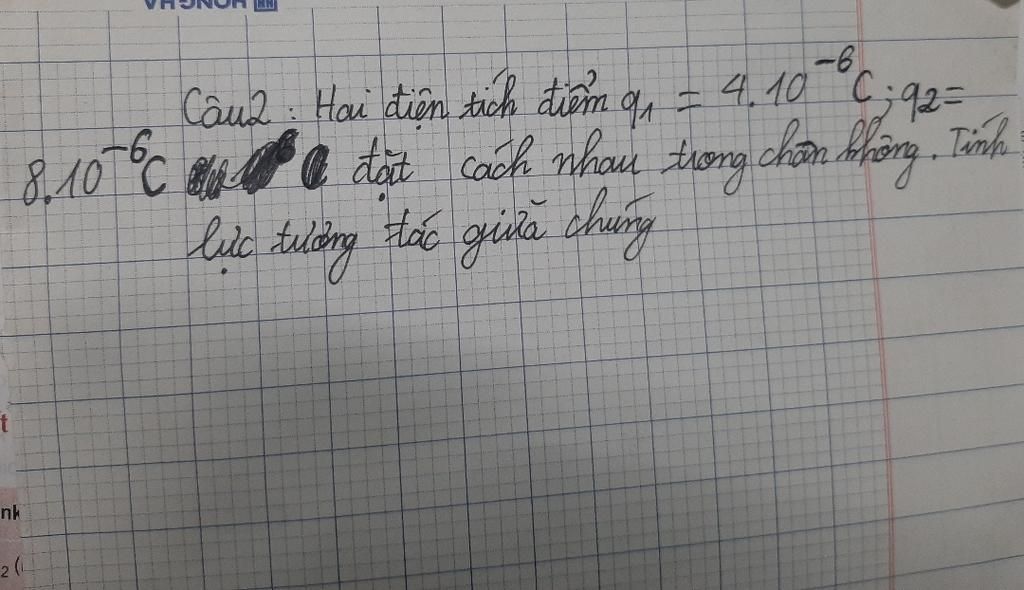 HỒNG HÀ
Câu2: Hai điện tích điểm q1 = 4.10^-6 C; q2 =
8.10^-6 C đặt cách nhau trong chân không. Tính
lực tương tác giữa chúng
t
nh
2 (